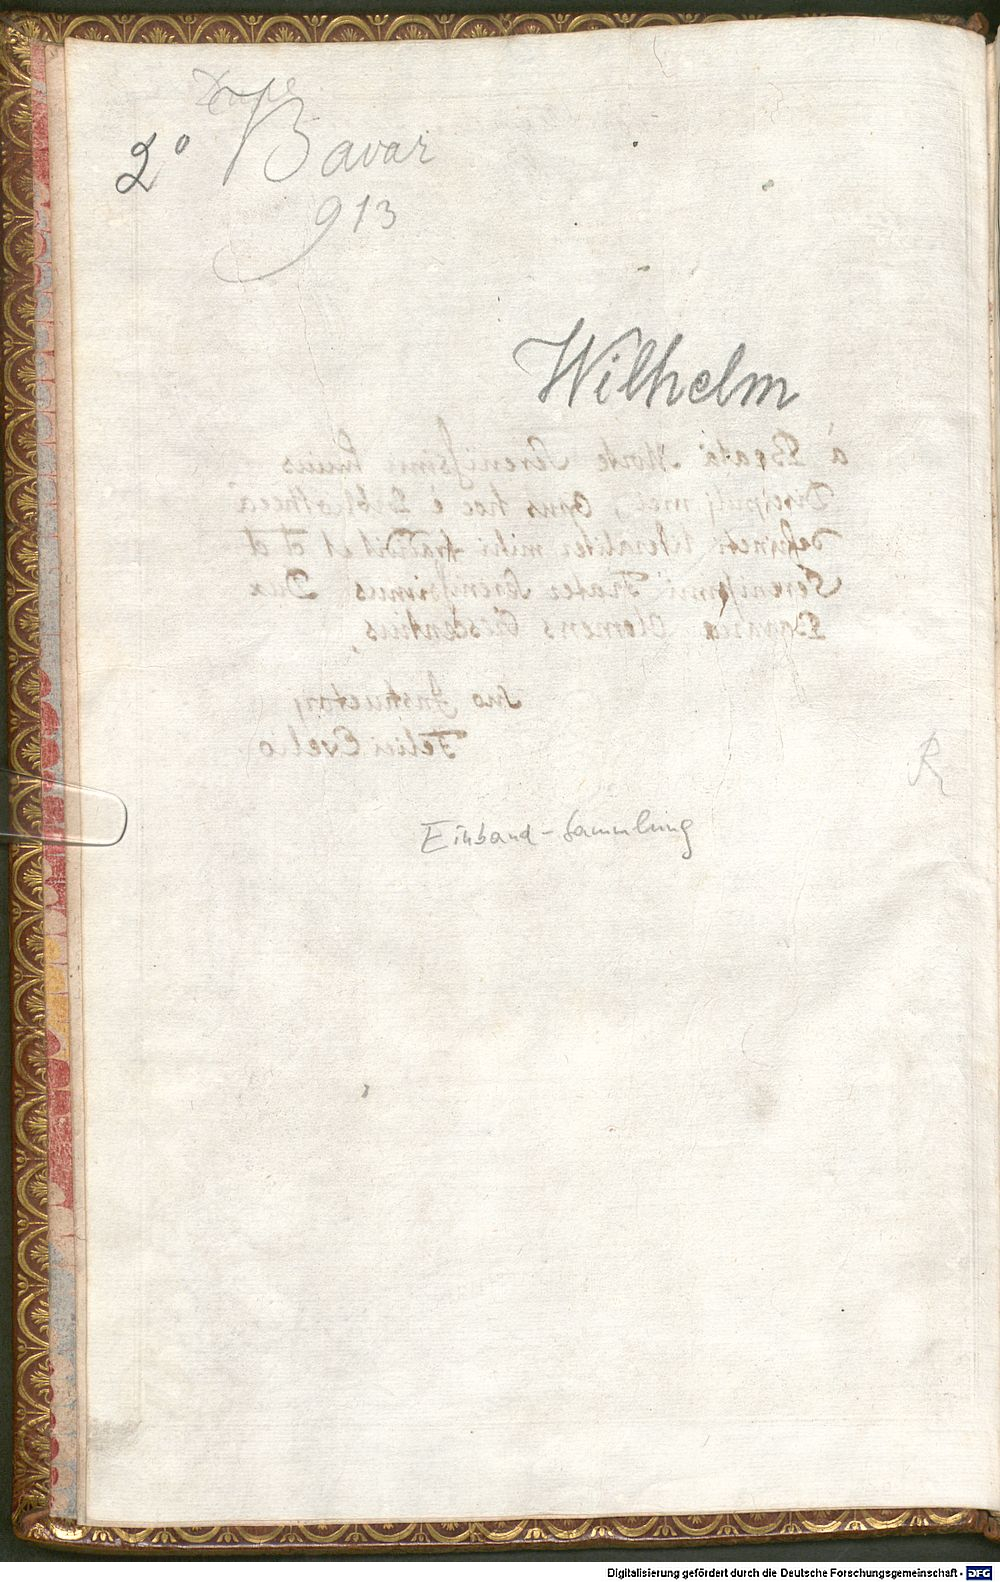 2° Bavar
913
Wilhelm
â Beatâ Morte Serenissimi huius
Discipuli mei, Opus hoc è Bibliothecâ
defuncti liberaliter mihi tradidit et dt dt
Serenissimi Frater Serenissimus Dux
Bavariæ Clemens
suo Instructori
Felici Evelio
R
Einband-Sammlung
Digitalisierung gefördert durch die Deutsche Forschungsgemeinschaft - DFG